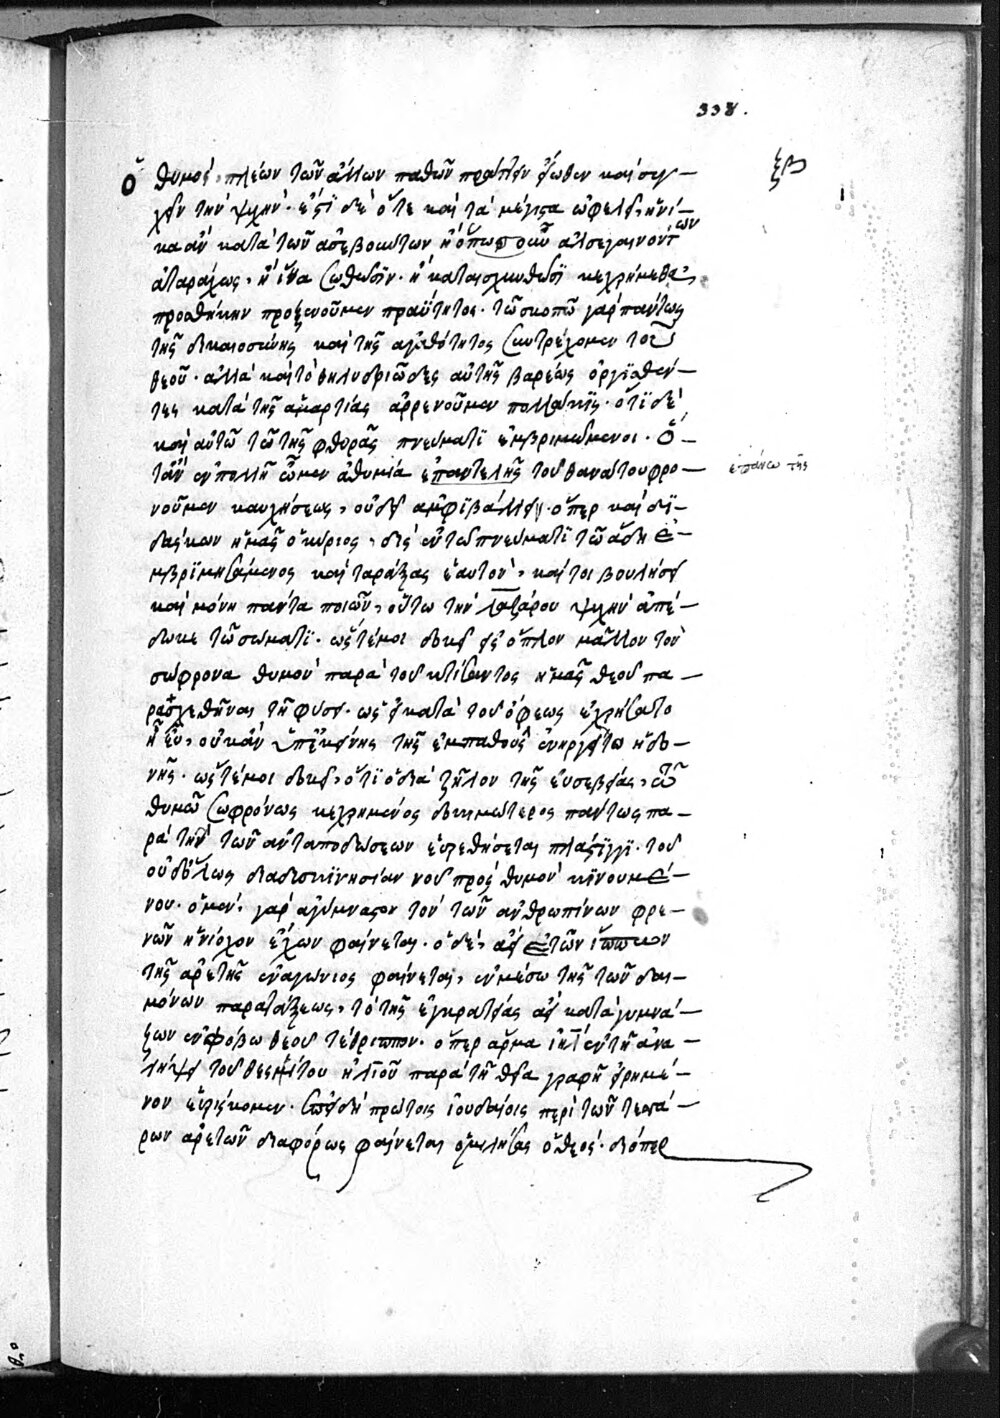 338.
ξβ
Ὁ θυμὸς πλέων τῶν ἄλλων παθῶν πράττειν εἴωθεν καὶ συγ–
χεῖν τὴν ψυχήν· ἔστι δὲ ὅτε καὶ τὰ μέγιστα ὠφελεῖ, ἡνί–
κα ἂν κατὰ τῶν ἀσεβούντων ἢ ὁπωσοῦν ἀσελγαινόντων
ἀταράχως, ἢ ἵνα σωθῶσιν ἢ καταισχυνθῶσι κεχρήμεθα,
προσθήκην προξενοῦμεν πραΰτητος· τῷ σκοπῷ γὰρ πάντως
τῆς δικαιοσύνης καὶ τῆς ἀγαθότητος συντρέχομεν τοῦ
θεοῦ· ἀλλὰ καὶ τὸ θηλυδριῶδες αὐτῆς βαρέως ὀργισθέν–
τες κατὰ τῆς ἁμαρτίας ἀρρενοῦμεν πολλάκις· ὅτι δὲ
καὶ αὐτῷ τῷ τῆς φθορᾶς πνεύματι ἐμβριμώμενοι· ὅ–
ταν ἐν πολλῇ ὦμεν ἀθυμίᾳ ἐπαντελῆς τοῦ θανάτου φρο–
ἐπάνω τῆς
νοῦμεν καυχήσεως, οὐδεὶς ἀμφιβάλλει· ὅπερ καὶ δι–
δάσκων ἡμᾶς ὁ κύριος, δὶς ἐν τῷ πνεύματι τῷ ἅδῃ ἐ–
μβριμησάμενος καὶ ταράξας ἑαυτόν, καίτοι βουλήσει
καὶ μόνῃ πάντα ποιῶν, οὕτω τὴν Λαζάρου ψυχὴν ἀπέ–
δωκε τῷ σώματι· ὥστέ μοι δοκεῖ εἰς ὅπλον μᾶλλον τὸν
σώφρονα θυμὸν παρὰ τοῦ κτίσαντος ἡμᾶς θεοῦ πα–
ρασχεθῆναι τῇ φύσει· ὡς εἰ κατὰ τοῦ ὄφεως ἐχρήσατο
ἡ εὔα, οὐκ ἂν ὑπ' ἐκείνης τῆς ἐμπαθοῦς ἐνηργεῖτο ἡδο–
νῆς· ὥστέ μοι δοκεῖ, ὅτι ὁ διὰ ζῆλον τῆς εὐσεβείας, τῷ
θυμῷ σωφρόνως κεχρημένος δοκιμώτερος πάντως πα–
ρὰ τὴν τῶν ἀνταποδόσεων εὑρεθήσεται πλάστιγγι· τοῦ
οὐδόλως διὰ δυσκινησίαν νοῦ πρὸς θυμὸν κινουμέ–
νου· ὁ μὲν, γὰρ ἀγύμναστον τὸν τῶν ἀνθρωπίνων φρε–
νῶν ἡνίοχον ἔχων φαίνεται· ὁ δὲ, ἀεὶ ἐπὶ τῶν ἵππων
τῆς ἀρετῆς ἐναγώνιος φαίνεται, ἐν μέσῳ τῆς τῶν δαι–
μόνων παρατάξεως, τὸ τῆς ἐγκρατείας ἀεὶ καταγυμνά–
ζων ἐν φόβῳ θεοῦ τέθριππον· ὅπερ ἅρμα ἰηλ ἐν τῇ ἀνα–
λήψει τοῦ θεσβίτου ἠλιοῦ παρὰ τῇ θείᾳ γραφῇ εἰρημέ–
νον εὑρίσκομεν· ἐπειδὴ πρώτοις ἰουδαίοις περὶ τῶν τεσσά–
ρων ἀρετῶν διαφόρως φαίνεται ὁμιλήσας ὁ θεός· διόπερ